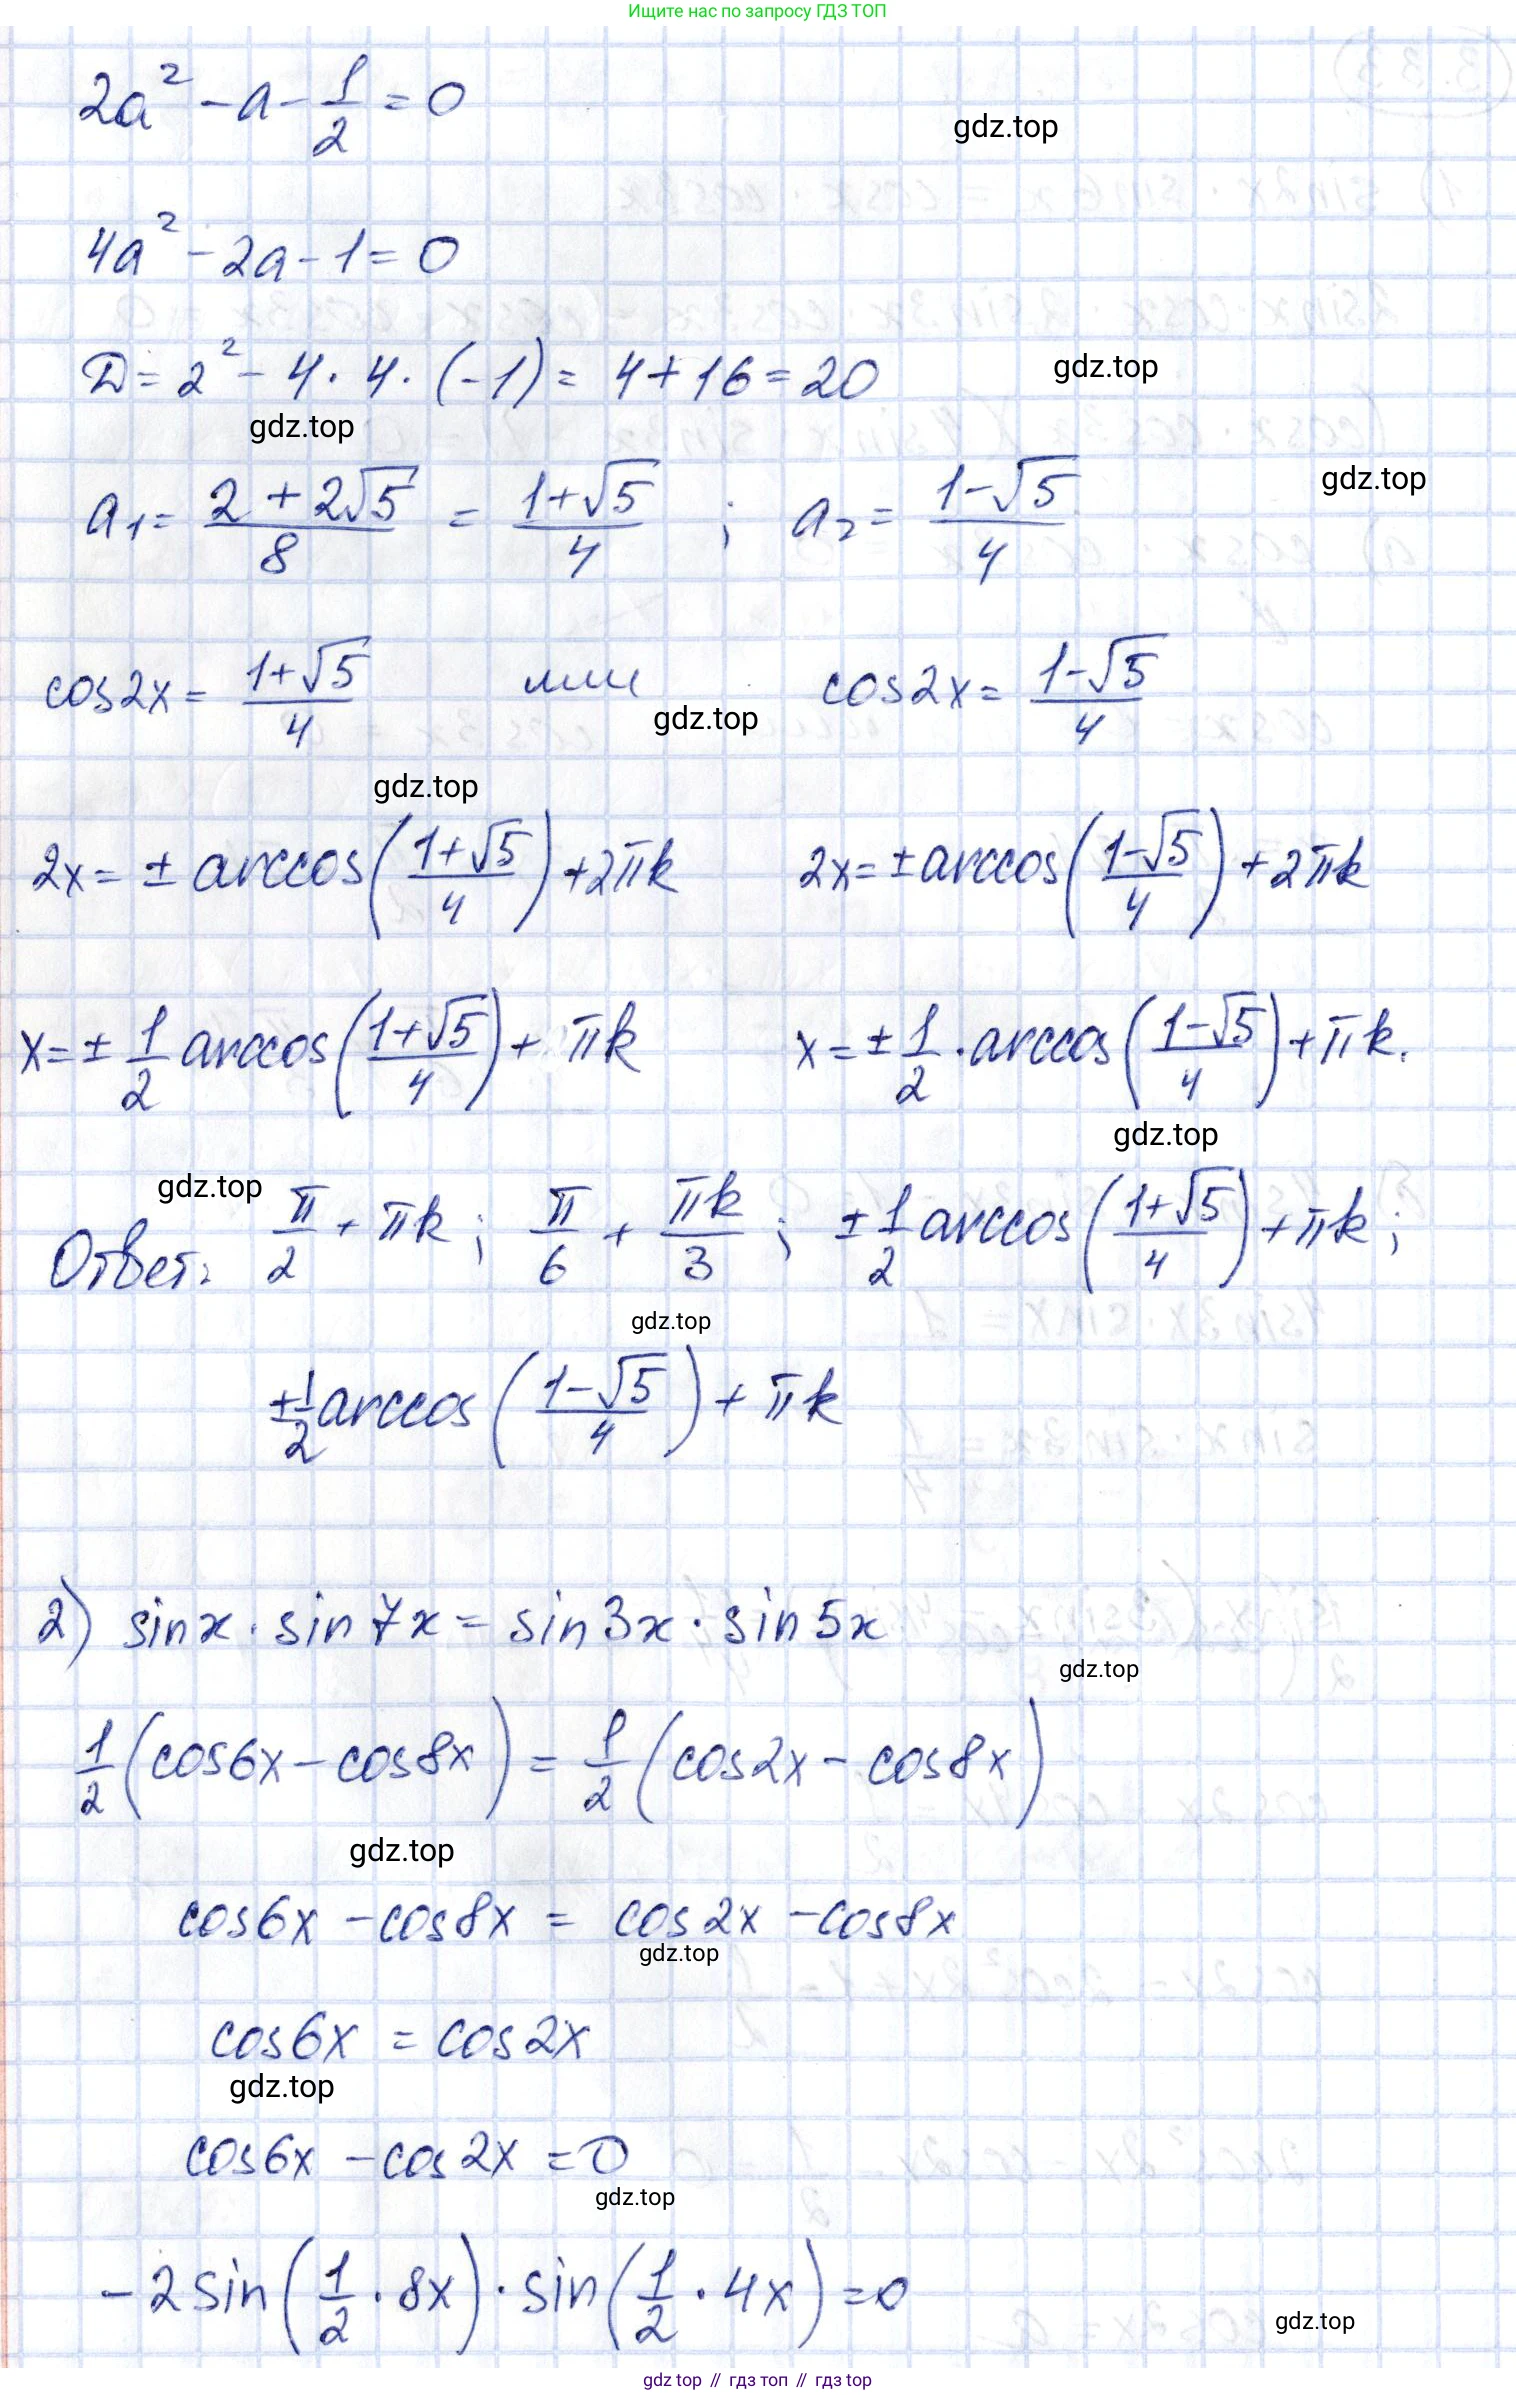 Ищите нас по запросу ГДЗ ТОП
2a² - a - 1/2 = 0
gdz.top
4a² - 2a - 1 = 0
D = 2² - 4 · 4 · (-1) = 4 + 16 = 20
gdz.top
gdz.top
a₁ = (2 + 2√5)/8 = (1+√5)/4 ; a₂ = (1-√5)/4
gdz.top
cos2x = (1+√5)/4 или cos2x = (1-√5)/4
gdz.top
gdz.top
2x = ± arccos((1+√5)/4) + 2πk 2x = ± arccos((1-√5)/4) + 2πk
x = ± 1/2 arccos((1+√5)/4) + πk x = ± 1/2 · arccos((1-√5)/4) + πk.
gdz.top
gdz.top
Ответ: π/2 + πk ; π/6 + πk/3 ; ± 1/2 arccos((1+√5)/4) + πk ;
gdz.top
± 1/2 arccos((1-√5)/4) + πk
2) sinx · sin7x = sin3x · sin5x
gdz.top
1/2 (cos6x - cos8x) = 1/2 (cos2x - cos8x)
gdz.top
cos6x - cos8x = cos2x - cos8x
gdz.top
cos6x = cos2x
gdz.top
cos6x - cos2x = 0
gdz.top
-2 sin(1/2 · 8x) · sin(1/2 · 4x) = 0
gdz.top
gdz top // гдз топ // gdz top